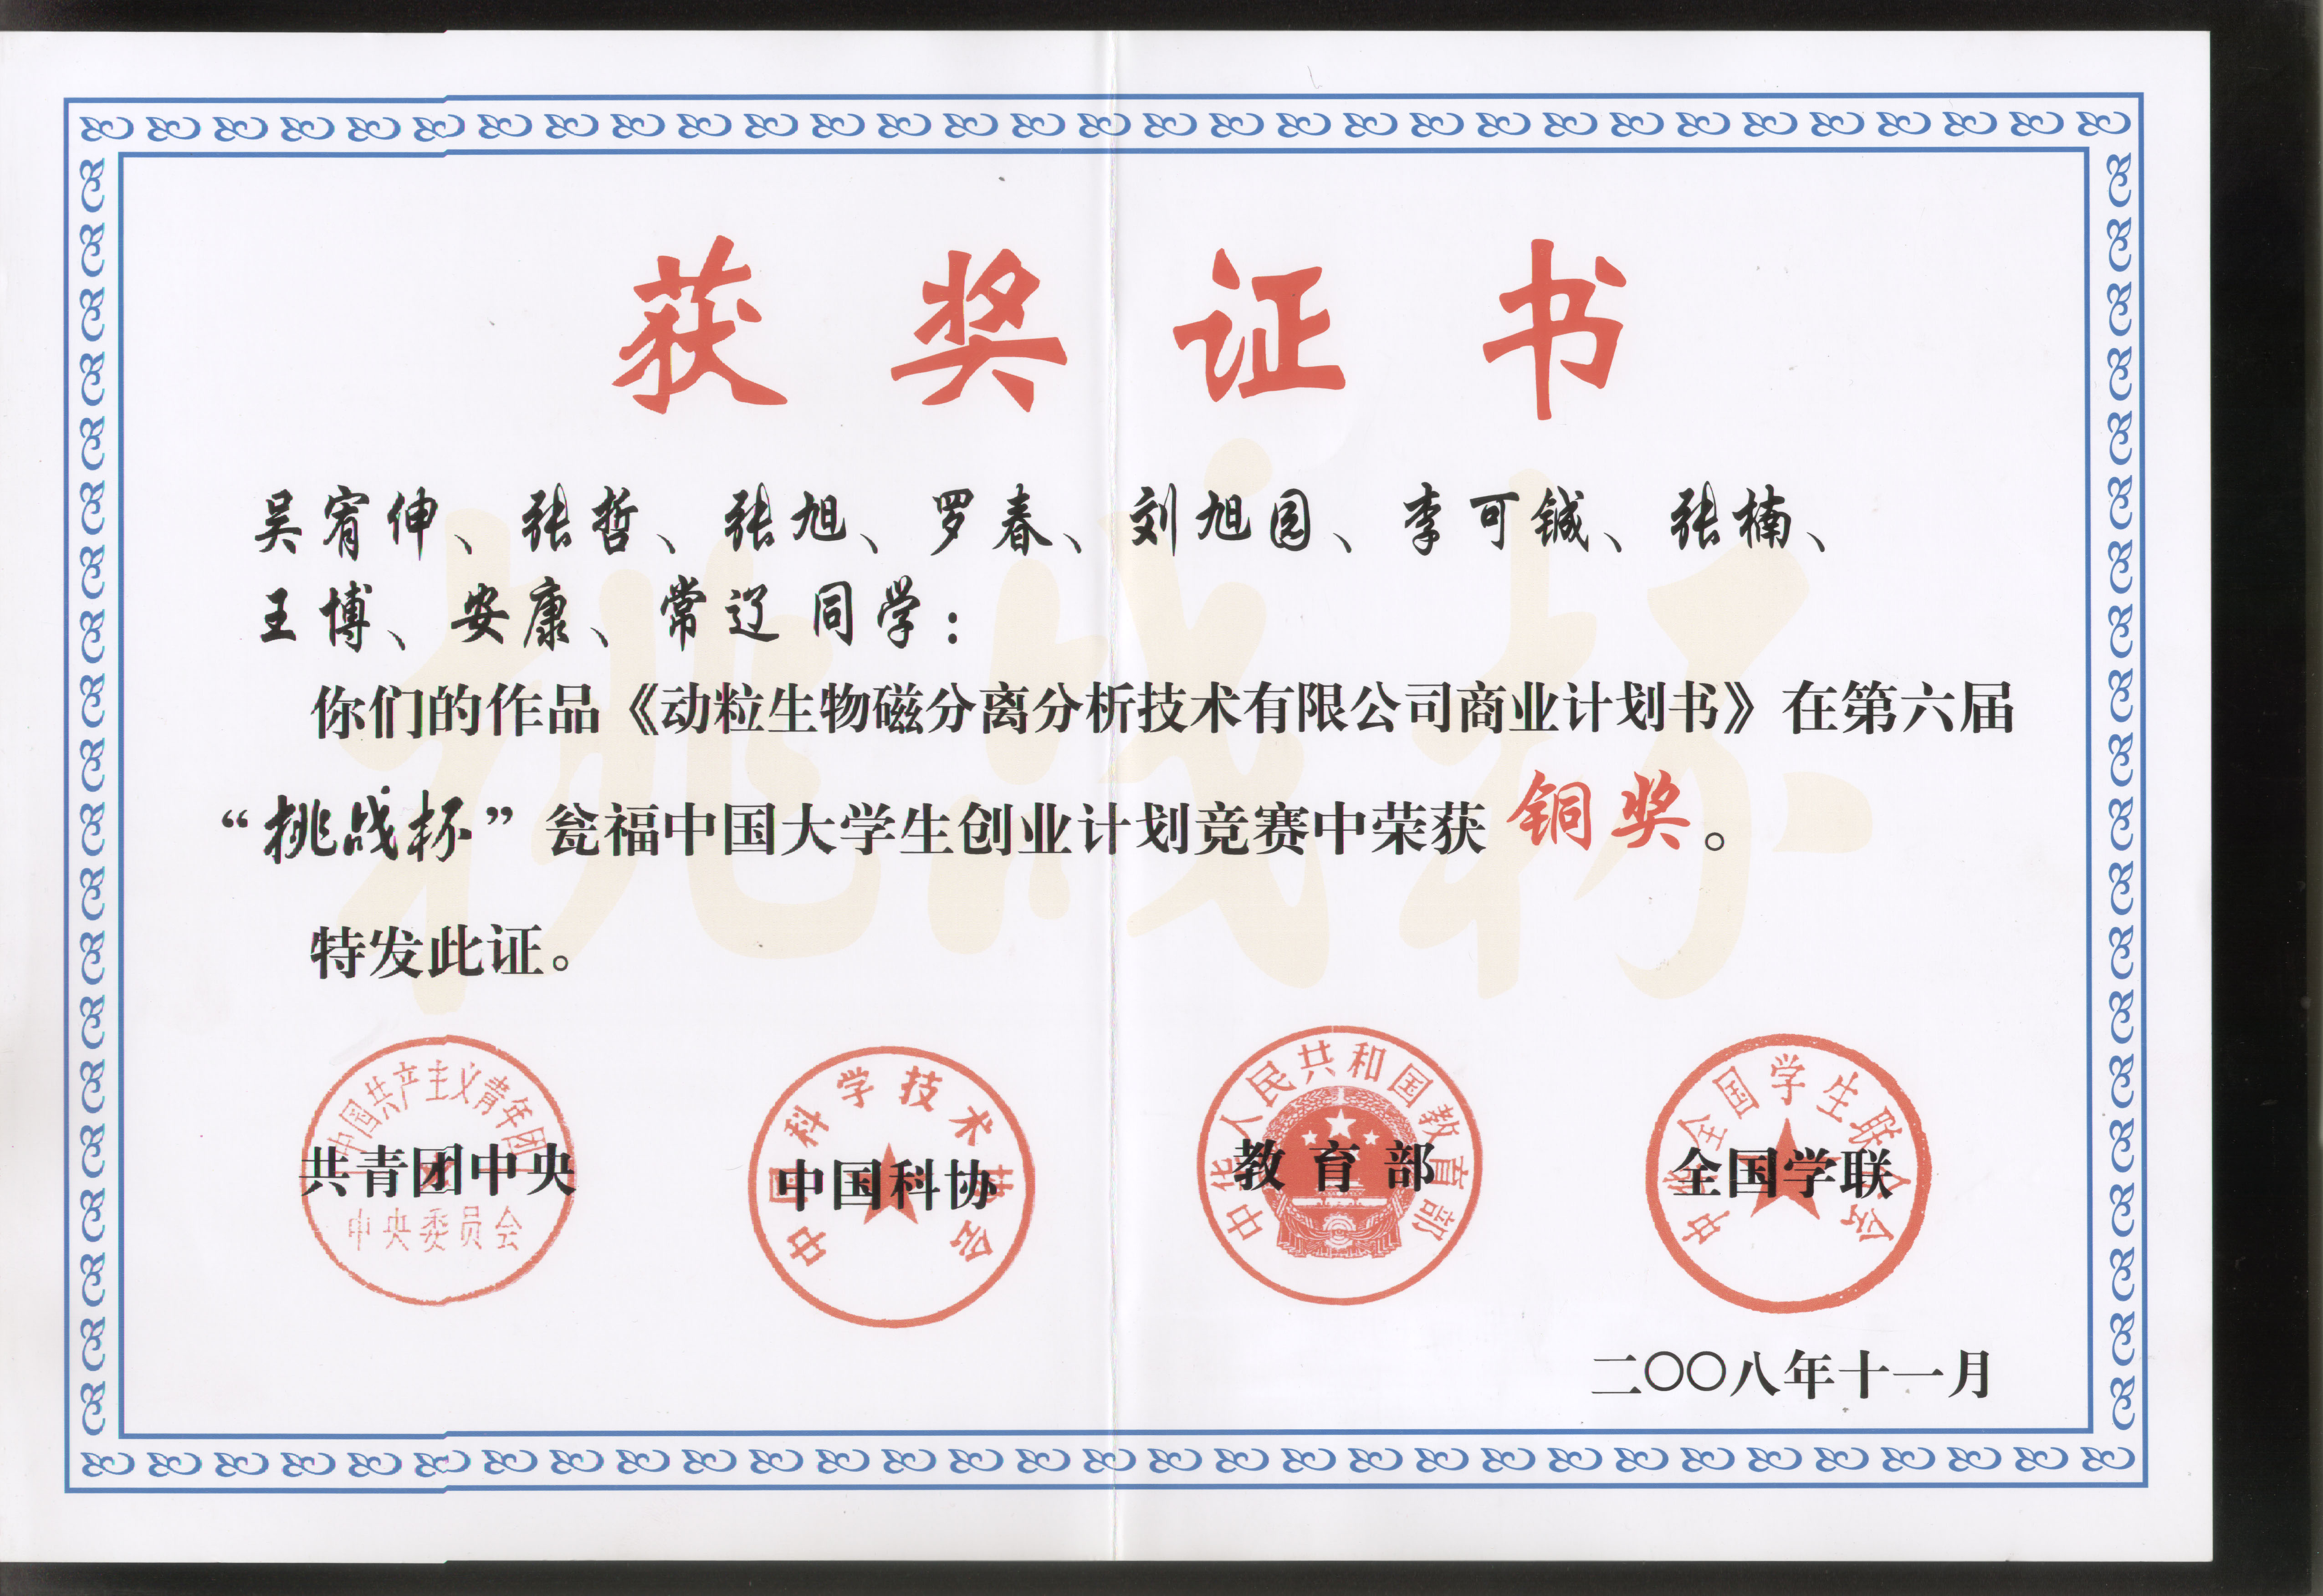 获奖证书
吴宥伸、张哲、张旭、罗春、刘旭园、李可铖、张楠、
王博、安康、常辽 同学：
你们的作品《动粒生物磁分离分析技术有限公司商业计划书》在第六届
“挑战杯”瓮福中国大学生创业计划竞赛中荣获 铜奖。
特发此证。
中国共产主义青年团
中央委员会
共青团中央
中国科学技术协会
中国科协
中华人民共和国教育部
教育部
中华全国学生联合会
全国学联
二〇〇八年十一月
挑战杯